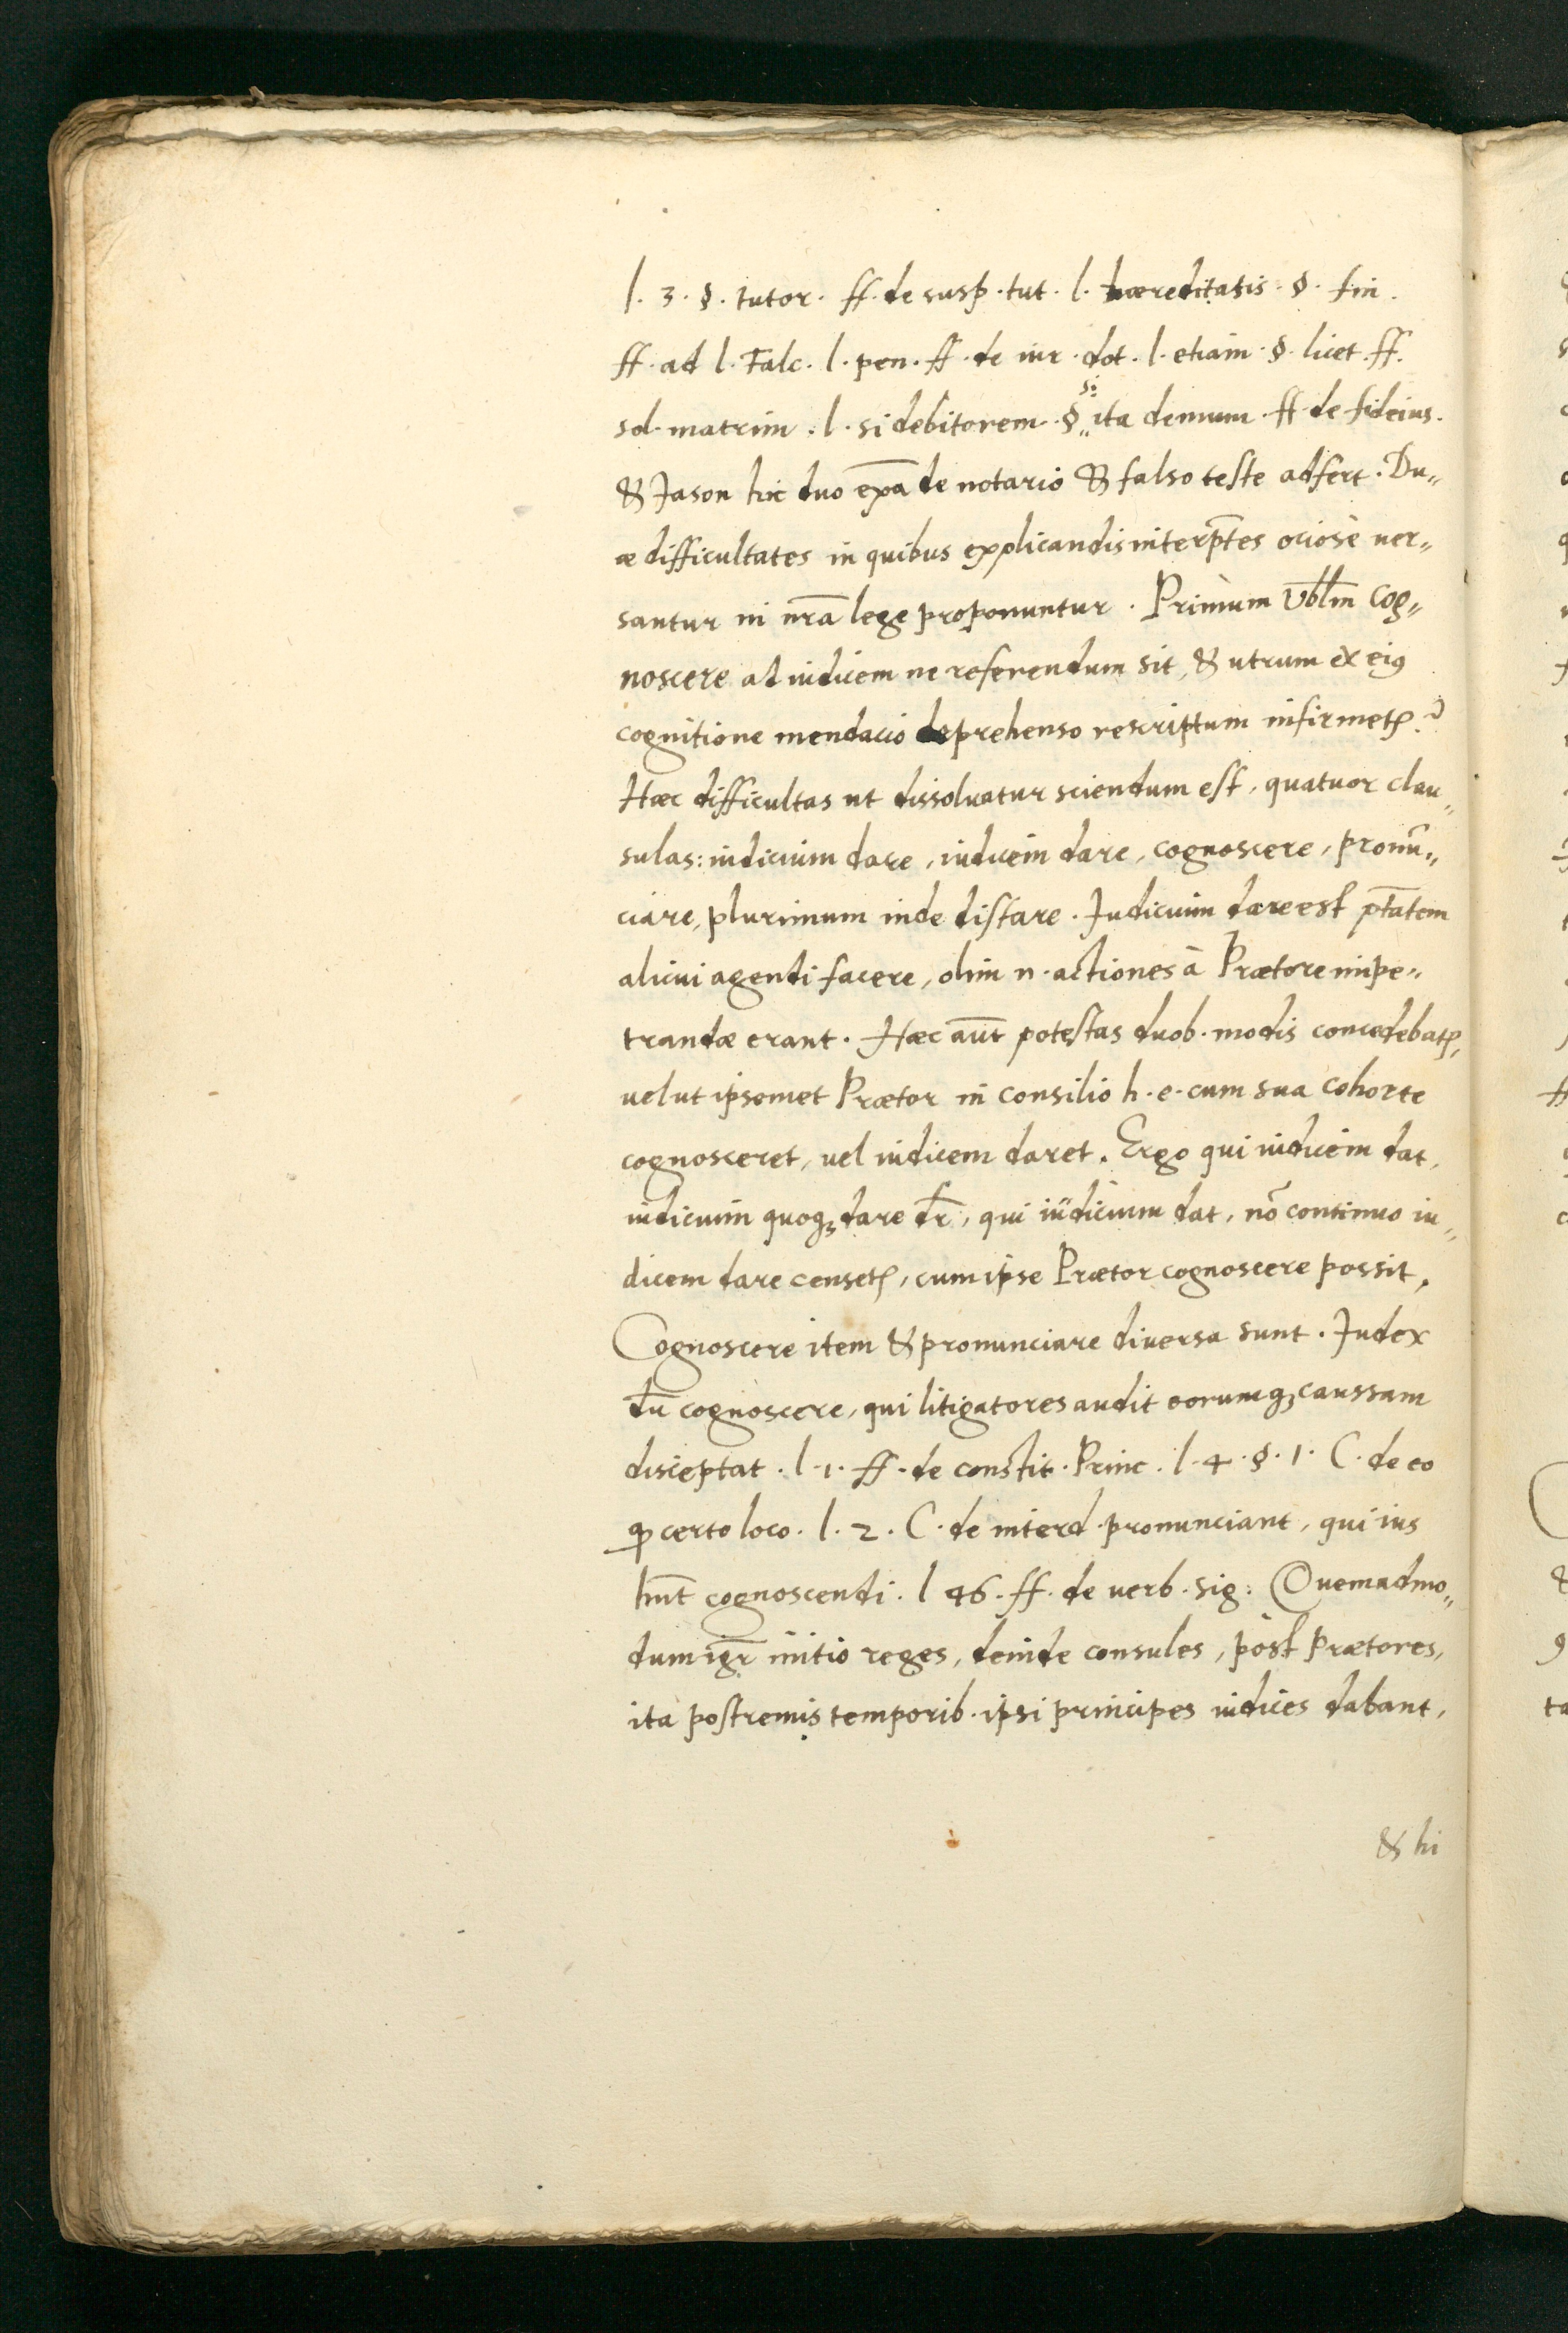 l. 3. §. tutor. ff. de susp. tut. l. hæreditatis. §. fin.
ff. ad l. Falc. l. pen. ff. de iur. dot. l. etiam. §. licet. ff.
sol. matrim. l. si debitorem. § si ita demum. ff de fideius.
& Jason hic duo exp̅a de notario & falso teste adfert. Du„
æ difficultates in quibus explicandis interp̅tes ociosè uer„
santur in nr̅a lege proponuntur. Primum Vbl̅m cog„
noscere ad iudicem ne referendum sit, & utrum ex eiꝰ
cognitione mendacio deprehenso rescriptum infirmetꝛ?
Hæc difficultas ut dissoluatur sciendum est, quatuor clau„
sulas: iudicium dare, iudicem dare, cognoscere, pronū„
ciare, plurimum inde distare. Judicium dare est p̅tatem
alicui agendi facere, olim n. actiones à Prætore impe„
trandæ erant. Hæc aūt potestas duob. modis concedebatꝛ,
uel ut ipsemet Prætor in consilio h. e. cum sua cohorte
cognosceret, uel iudicem daret. Ergo qui iudicem dat,
iudicium quoqꝫ dare dr̅, qui iudicium dat, nō continuo iu„
dicem dare censetꝛ, cum ipse Prætor cognoscere possit.
Cognoscere item & pronunciare diuersa sunt. Judex
dr̅ cognoscere, qui litigatores audit eorumqꝫ caussam
disceptat. l. 1. ff. de constit. Princ. l. 4. §. 1. C. de eo
ꝙ certo loco. l. 2. C. de interd. pronunciant, qui ius
hn̅t cognoscendi. l 46. ff. de uerb. sig: Quemadmo„
dum igr̅ initio reges, deinde consules, pòst Prætores,
ita postremis temporib. ipsi principes iudices dabant,
& hi